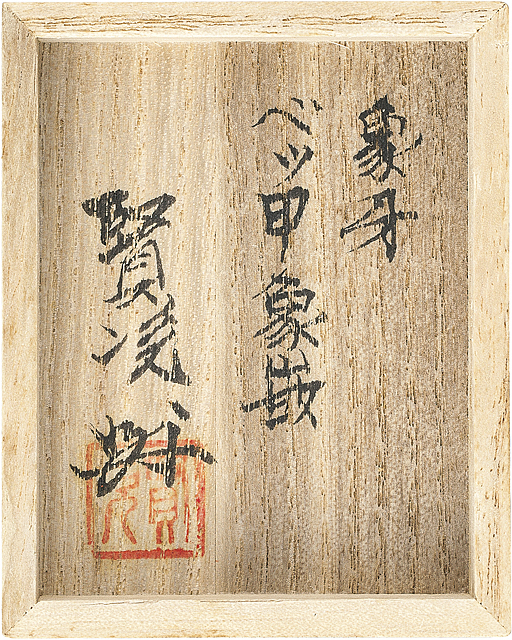 象牙
ベッ甲象嵌
賢凌斎